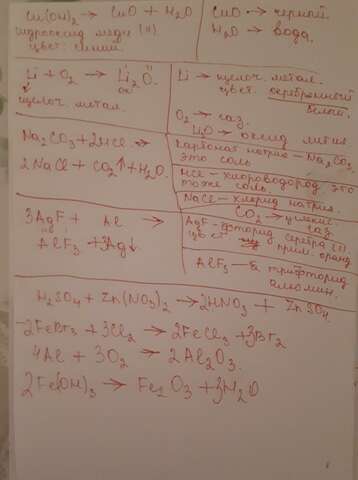 Cu(OH)₂ → CuO + H₂O
гидроксид меди (II)
цвет: синий.
CuO → черный
H₂O → вода,
Li + O₂ → Li₂O
щелоч. метал.
Li → щелоч. метал.
цвет. серебрянный
белый.
O₂ → газ.
оксид лития.
Na₂CO₃ + 2HCl →
2NaCl + CO₂↑ + H₂O.
карбонат натрия – Na₂CO₃
это соль
HCl – хлороводород, это
тоже соль
NaCl – хлорид натрия.
CO₂ →
газ
3AgF + Al →
AlF₃ + 3Ag↓
AgF – фторид серебра (I)
цвет
AlF₃ – трифторид
алюмин.
H₂SO₄ + Zn(NO₃)₂ → 2HNO₃ + ZnSO₄
2FeBr₃ + 3Cl₂ → 2FeCl₃ + 3Br₂
4Al + 3O₂ → 2Al₂O₃.
2Fe(OH)₃ → Fe₂O₃ + 3H₂O